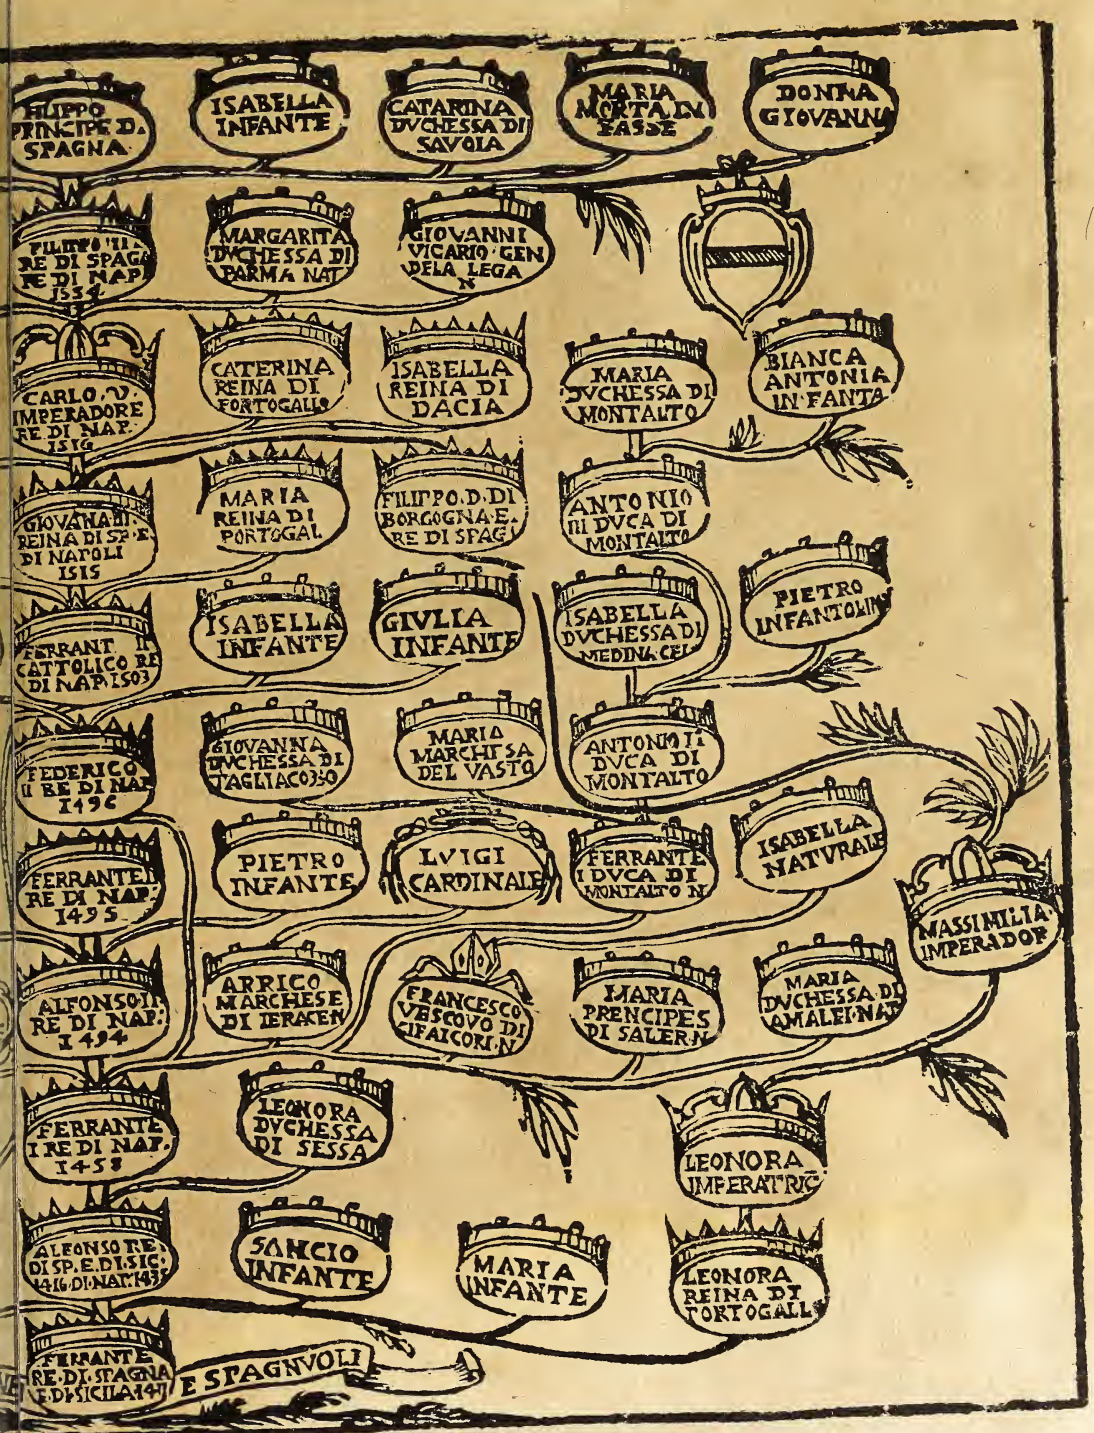 FILIPPO
PRINCIPE D.
SPAGNA
ISABELLA
INFANTE
CATARINA
DVCHESSA DI
SAVOIA
MARIA
MORTA IN
FASSE
DONNA
GIOVANNA
FILIPPO II
RE DI SPAG
RE DI NAP
1554
MARGARITA
DVCHESSA DI
PARMA NAT
GIOVANNI
VICARIO GEN
DELA LEGA
N
CARLO . V .
IMPERADORE
RE DI NAP.
1516
CATERINA
REINA DI
PORTOGALLO
ISABELLA
REINA DI
DACIA
MARIA
DVCHESSA DI
MONTALTO
BIANCA
ANTONIA
INFANTA
GIOVANA
REINA DI SP. E.
DI NAPOLI
1515
MARIA
REINA DI
PORTOGAL
FILIPPO. D. DI
BORGOGNA E.
RE DI SPAG
ANTONIO
III DVCA DI
MONTALTO
FERRANT II
CATTOLICO RE
DI NAP. 1503
ISABELLA
INFANTE
GIVLIA
INFANTE
ISABELLA
DVCHESSA DI
MEDINA CEL
PIETRO
INFANTOLIN
FEDERICO
II RE DI NAP
1496
GIOVANNA
DVCHESSA DI
TAGLIACOZZO
MARIA
MARCHESA
DEL VASTO
ANTONIO II
DVCA DI
MONTALTO
FERRANTE II
RE DI NAP.
1495
PIETRO
INFANTE
LVIGI
CARDINALE
FERRANTE
I DVCA DI
MONTALTO N.
ISABELLA
NATVRALE
MASSIMILIA
IMPERADOR
ALFONSO II
RE DI NAP.
1494
ARRICO
MARCHESE
DI IERACE N
FRANCESCO
VESCOVO DI
MARIA
PRENCIPES
DI SALER. N
MARIA
DVCHESSA DI
AMALFI NAT
FERRANTE
I RE DI NAP.
1458
LEONORA
DVCHESSA
DI SESSA
LEONORA
IMPERATRIC
ALFONSO RE
DI SP. E. DI SIC.
1416. DI NAP. 1435
SANCIO
INFANTE
MARIA
INFANTE
LEONORA
REINA DI
PORTOGALL
FERRANTE
RE. DI. SPAGNA
E. DI SICILA
E SPAGNVOLI